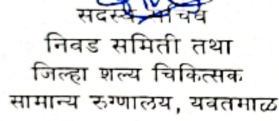 सदस्य सचिव
निवड समिती तथा
जिल्हा शल्य चिकित्सक
सामान्य रुग्णालय, यवतमाळ